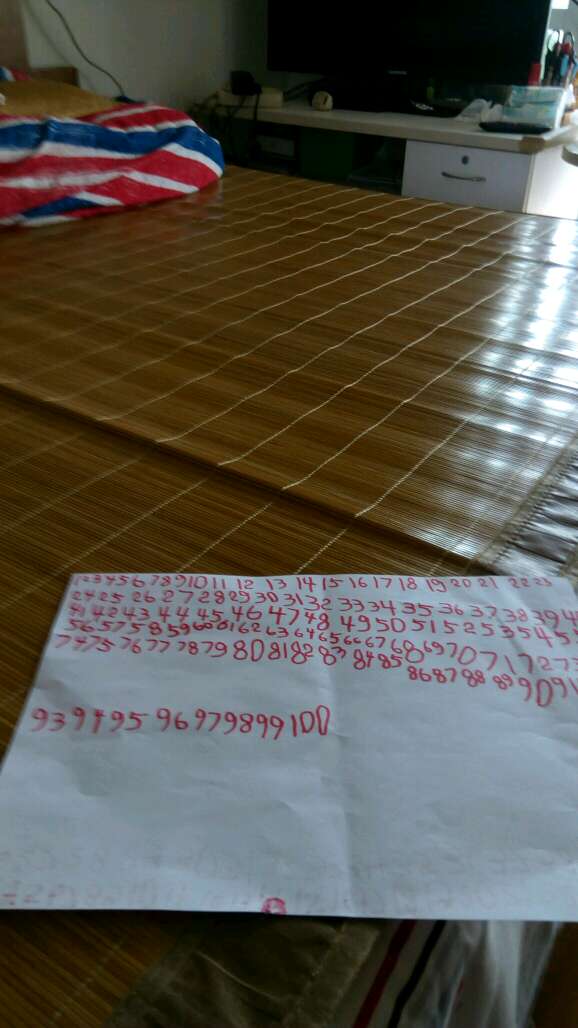 1 2 3 4 5 6 7 8 9 10 11 12 13 14 15 16 17 18 19 20 21 22 23
24 25 26 27 28 29 30 31 32 33 34 35 36 37 38 39 4
41 42 43 44 45 46 47 48 49 50 51 52 53 54 5
56 57 58 59 60 61 62 63 64 65 66 67 68 69 70 71 72 7
74 75 76 77 78 79 80 81 82 83 84 85
86 87 88 89 90 91
93 94 95 96 97 98 99 100